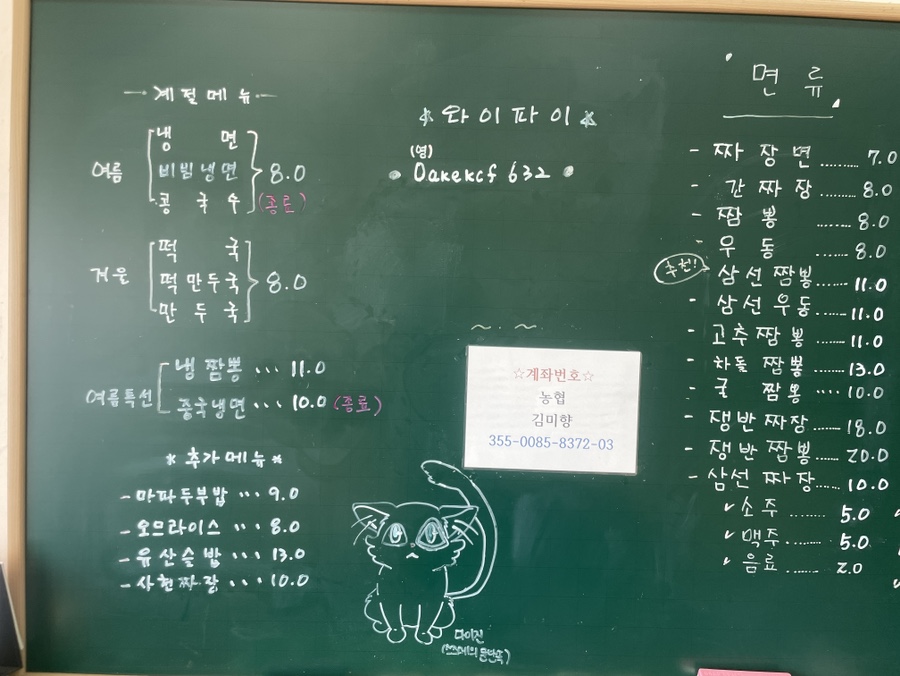 계절메뉴
여름
냉 면
비빔냉면
콩 국 수
8.0
(종료)
겨울
떡 국
떡만두국
만 두 국
8.0
여름특선
냉짬뽕 ... 11.0
중국냉면 ... 10.0 (종료)
* 추가메뉴 *
- 마파두부밥 ... 9.0
- 오므라이스 ... 8.0
- 유산슬밥 ... 13.0
- 사천짜장 ... 10.0
와이파이
(영)
Dakekcf 632
☆계좌번호☆
농협
김미향
355-0085-8372-03
다이진
면 류
- 짜장면 ........ 7.0
- 간짜장 ........ 8.0
- 짬뽕 ....... 8.0
- 우동 ....... 8.0
추천!
삼선짬뽕 ...... 11.0
- 삼선우동 ...... 11.0
- 고추짬뽕 ....... 11.0
- 차돌짬뽕 ....... 13.0
- 굴 짬뽕 .... 10.0
- 쟁반짜장 ...... 18.0
- 쟁반짬뽕 ...... 20.0
- 삼선짜장 ...... 10.0
✓ 소주 ....... 5.0
✓ 맥주 ........ 5.0
✓ 음료 ...... 2.0